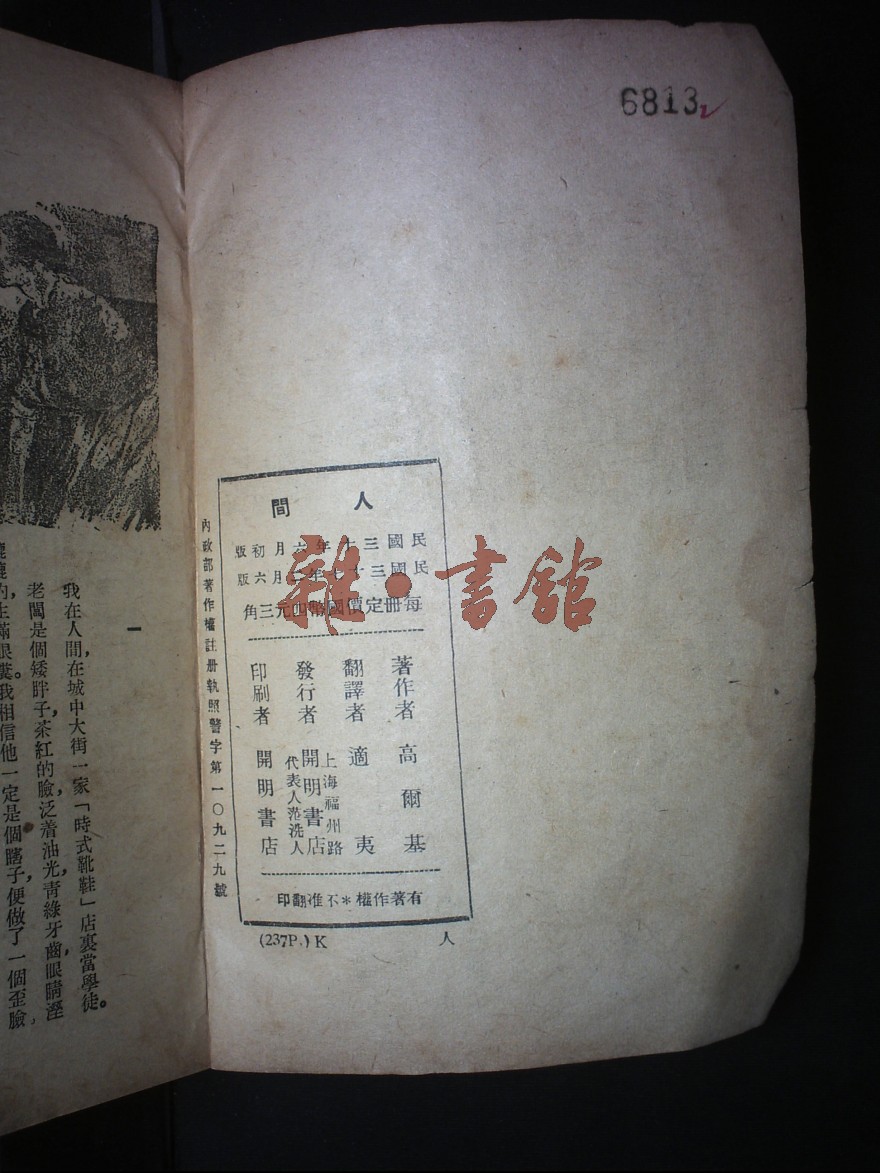 6813
人間
民國三十年六月初版
民國三十年月六版
每冊定價國幣四元三角
著作者 高爾基
翻譯者 適夷
發行者 上海福州路 開明書店 代表人范洗人
印刷者 開明書店
有著作權*不准翻印
人
(237P.) K
內政部著作權註册執照警字第一〇九二九號
雜·書館
一
我在人間，在城中大街一家「時式靴鞋」店裏當學徒。
老闆是個矮胖子，茶紅的臉，泛着油光，青綠牙齒，眼睛溼
的生滿眼糞。我相信他一定是個瞎子，便做了一個歪臉，